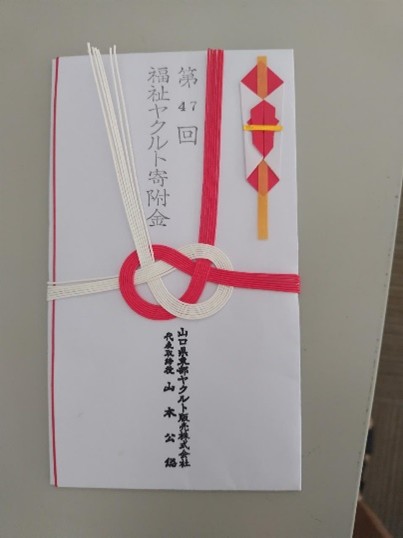 第47回
福祉ヤクルト寄附金
山口県東部ヤクルト販売株式会社
代表取締役 山本公